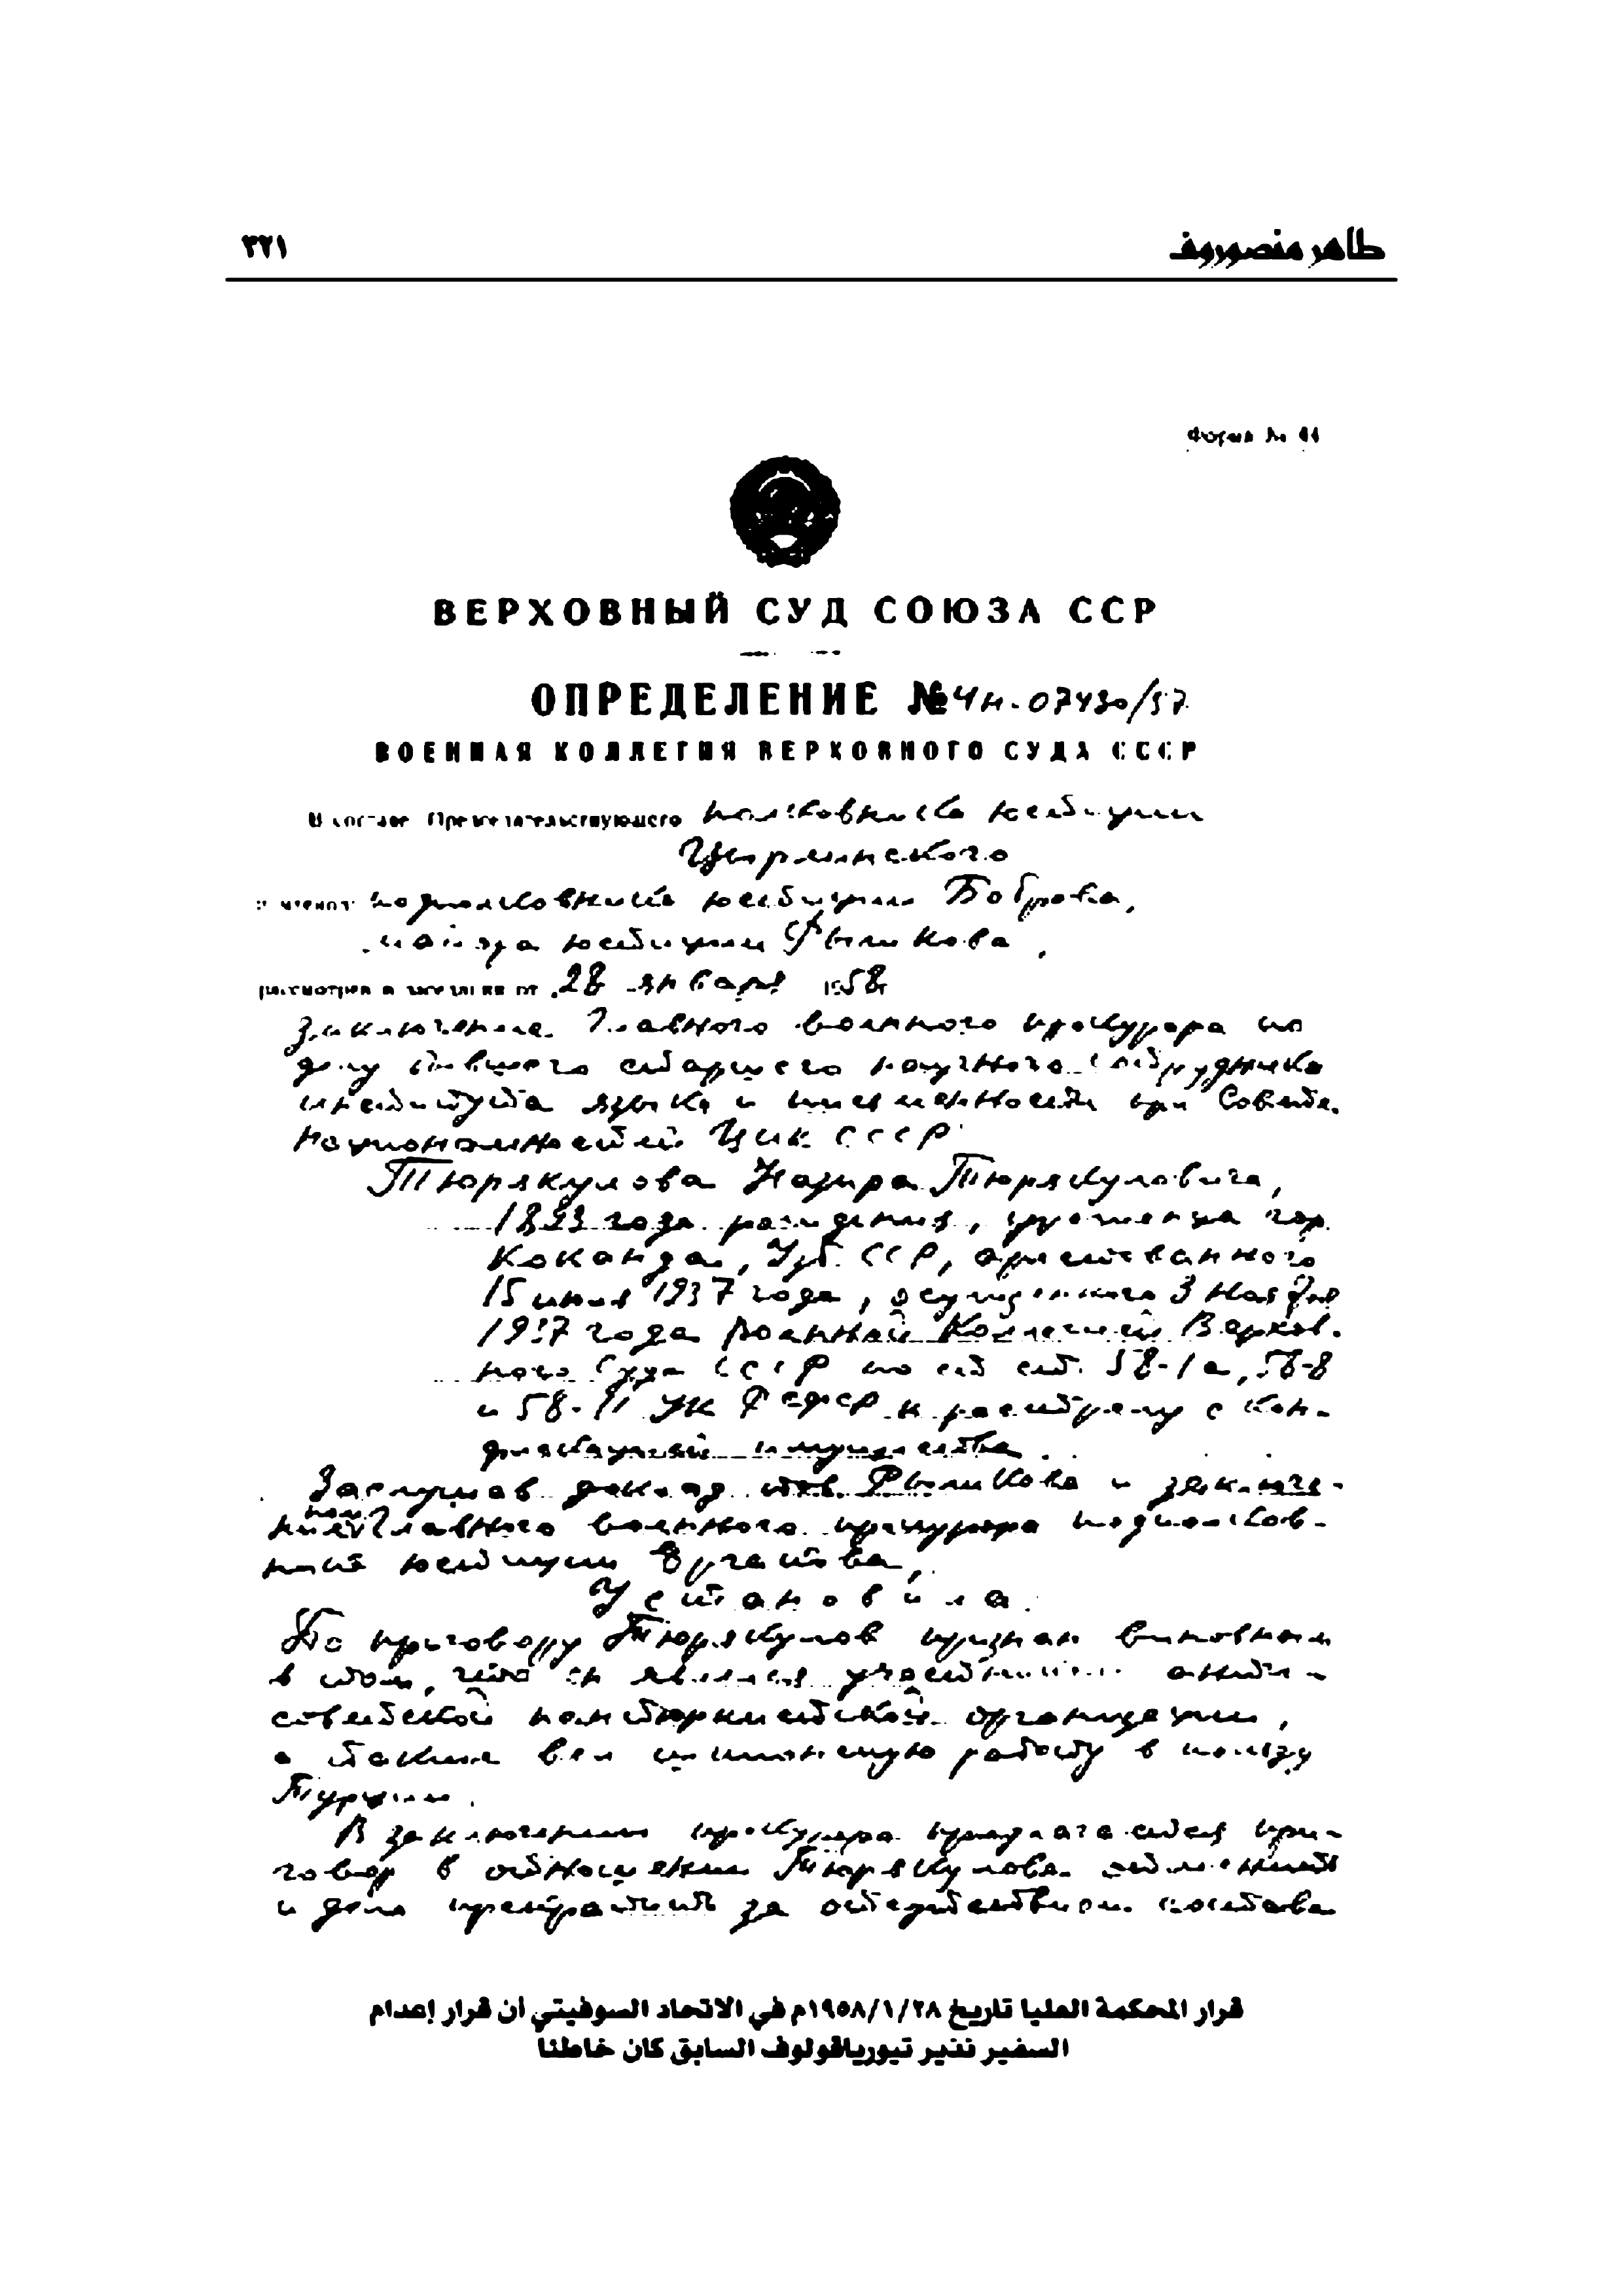 طاهر منصوروف ٣٢١
Форма №
ВЕРХОВНЫЙ СУД СОЮЗА ССР
ОПРЕДЕЛЕНИЕ №4н-07430/57
ВОЕННАЯ КОЛЛЕГИЯ ВЕРХОВНОГО СУДА СССР
В составе Председательствующего полковника юстиции
и членов подполковника юстиции Боброва,
майора юстиции
рассмотрев в заседании от 28 января 1958г
заключение Главного военного прокурора по
делу бывшего старшего научного сотрудника
института языка и письменности при Совете
национальностей ЦИК СССР
Тюрякулова Назира Тюрякуловича,
года рождения, уроженца гор.
Коканда, Узб. ССР, арестованного
15 июля 1937 года, осужденного 3 ноября
1937 года Военной Коллегией Верхов-
ного Суда СССР по ст. ст. 58-1а, 58-8
и 58-11 УК РСФСР к расстрелу с кон-
фискацией имущества.
Заслушав доклад тов. и заключе-
Главного военного прокурора подполков-
юстиции
Установила:
По приговору Тюрякулов признан виновным
в том, что он являлся участником анти-
советской пантюркистской организации,
а также вел шпионскую работу в пользу
Турции.
В заключении прокурора предлагается при-
говор в отношении Тюрякулова отменить
и дело прекратить за отсутствием состава
قرار المحكمة العليا تاريخ ١٩٥٨/١/٢٨م في الاتحاد السوفيتي أن قرار إعدام
السفير نذير تيورياقولوف السابق كان خاطئا